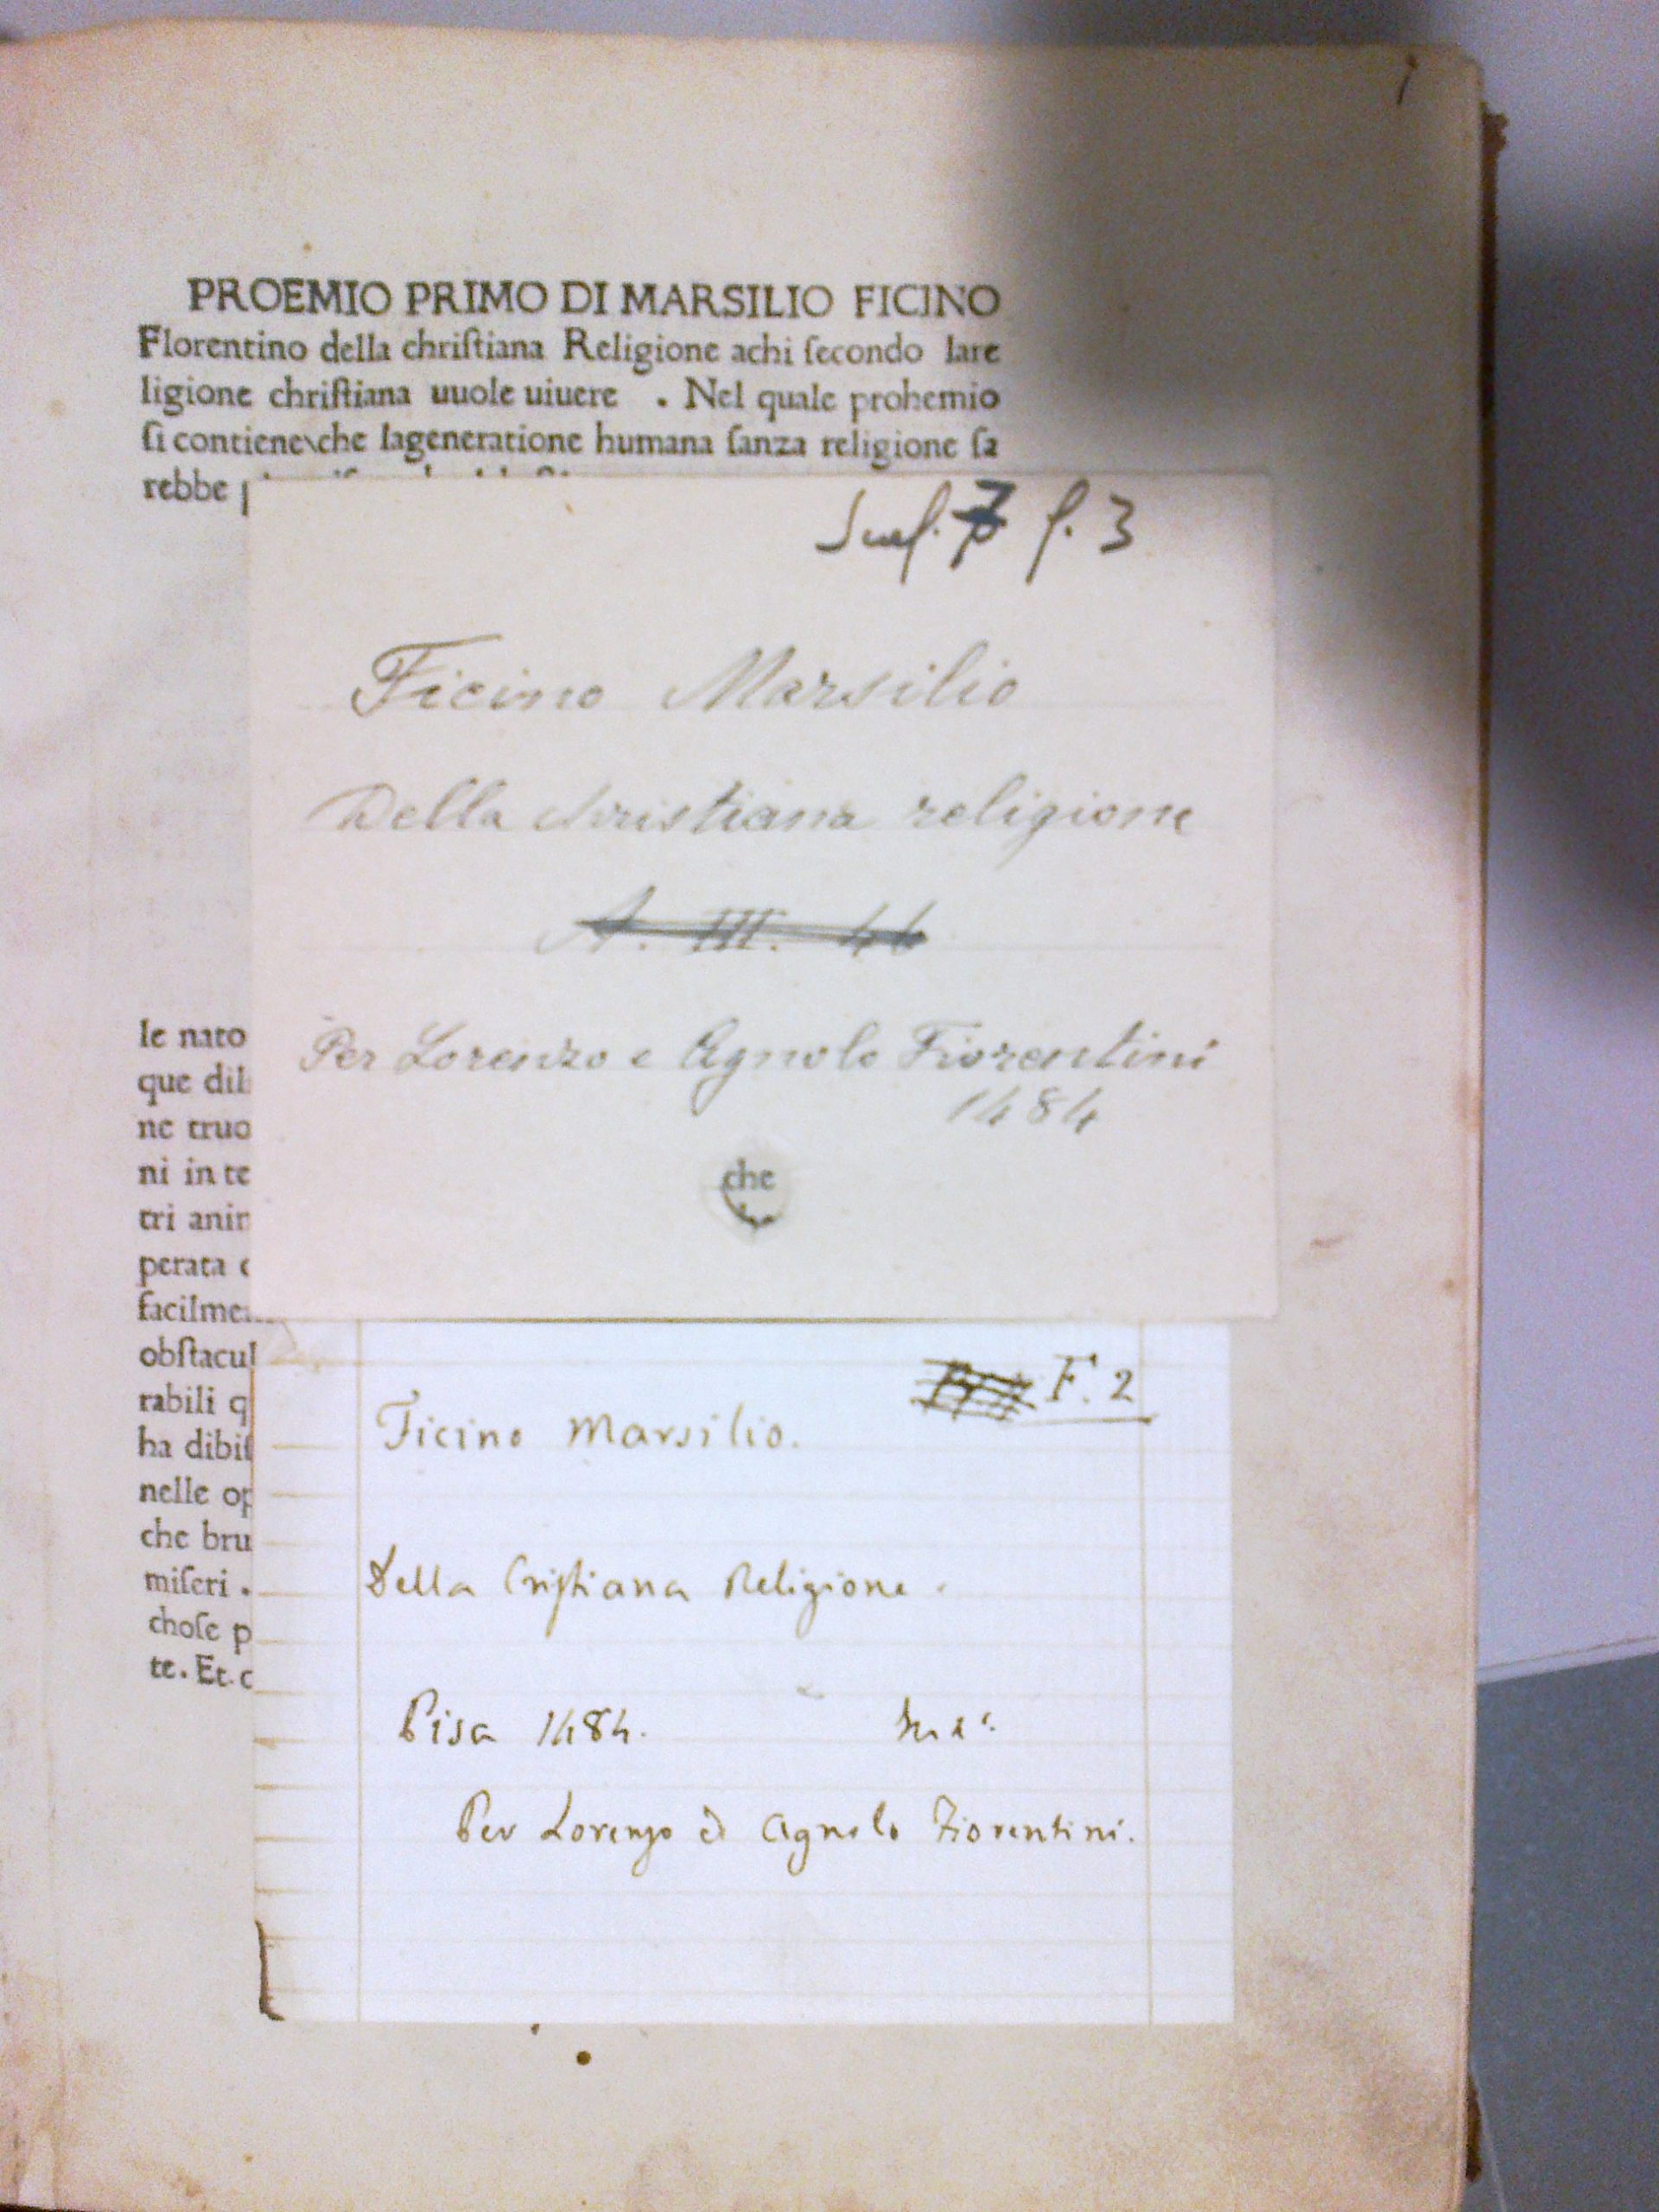 1
PROEMIO PRIMO DI MARSILIO FICINO
Florentino della chriſtiana Religione achi ſecondo lare
ligione chriſtiana uuole uiuere . Nel quale prohemio
ſi contiene\che lageneratione humana ſanza religione ſa
rebbe
Scaf. 7 f. 3
Ficino Marsilio
Della christiana religione
A. III. 44
Per Lorenzo e Agnolo Fiorentini
1484
che
le nato
que dil
ne truo
ni in te
tri anim
perata
facilme
obſtacul
rabili q
ha dibiſ
nelle op
che bru
miſeri .
choſe p
te. Et c
F. 2
Ficino Marsilio.
Della Cristiana Religione.
Pisa 1484.
Per Lorenzo ed Agnolo Fiorentini.